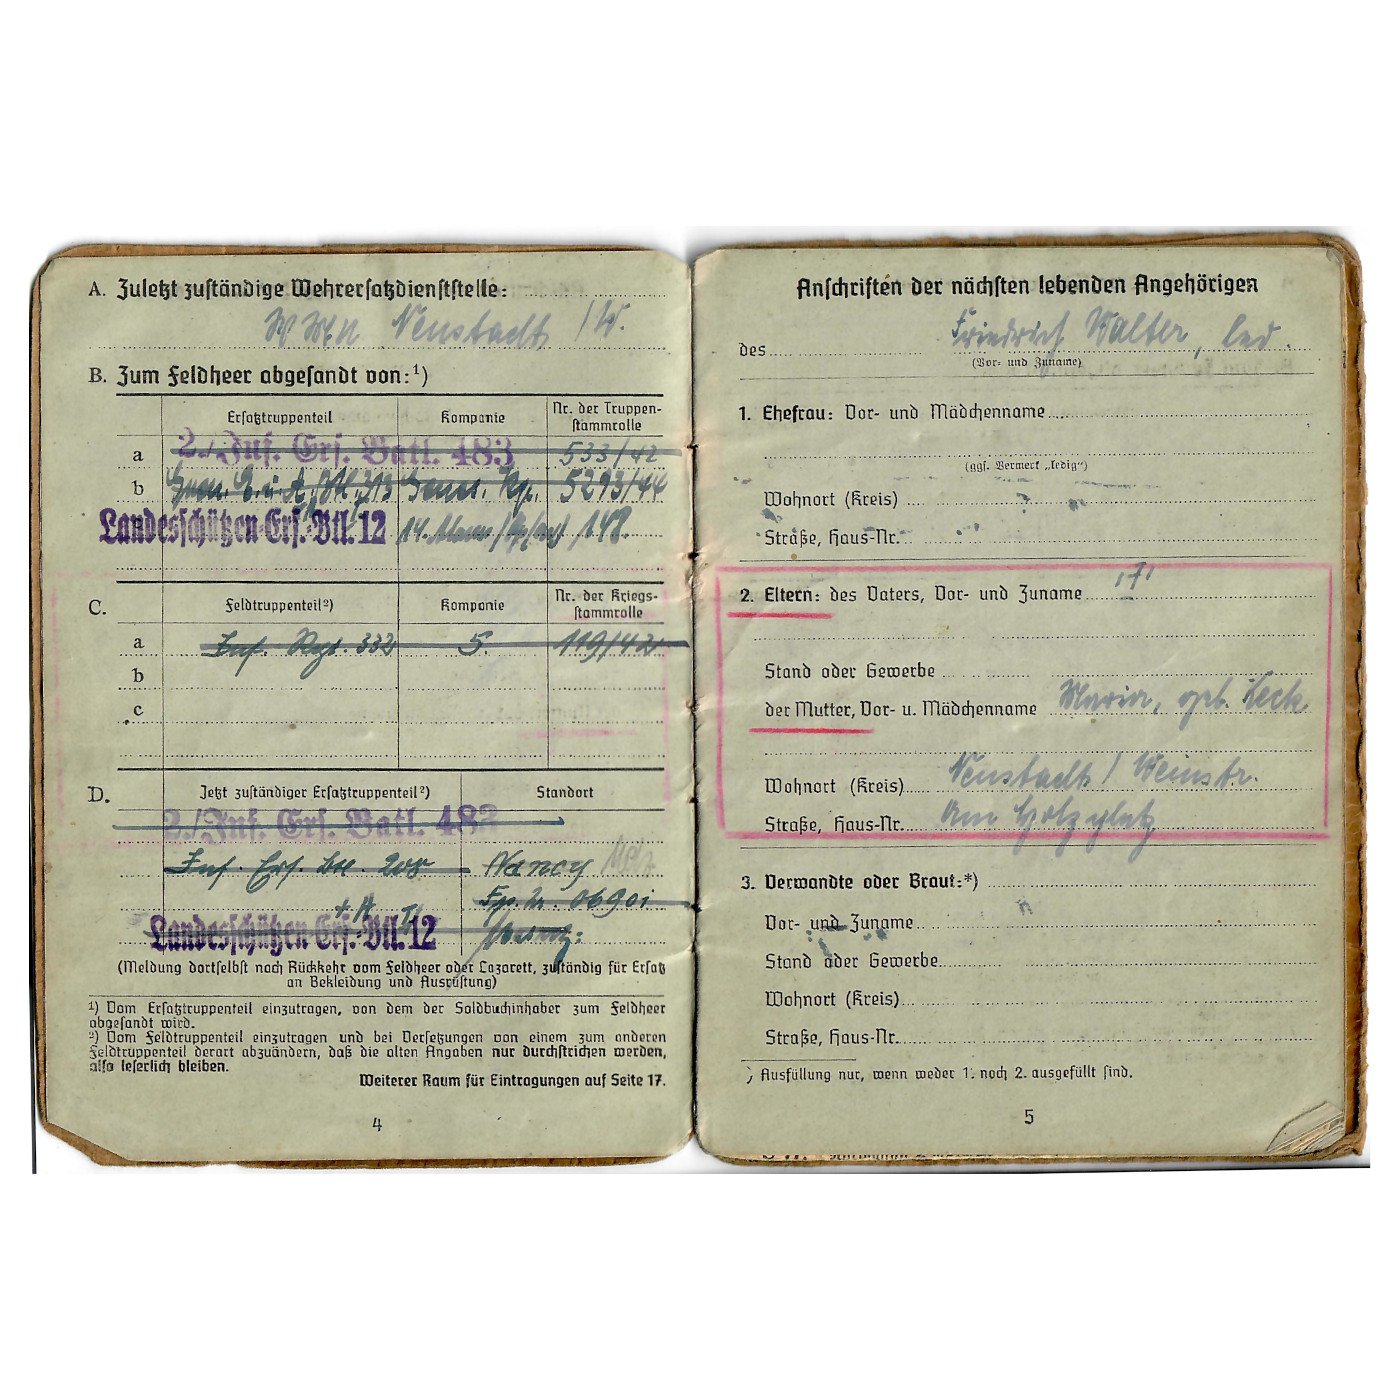 A. Zuletzt zuständige Wehrersatzdienststelle:
Neustadt /W.
B. Zum Feldheer abgesandt von:¹)
Ersatztruppenteil Kompanie Nr. der Truppen-
stammrolle
a 2./Inf. Ers. Batl. 483 533/42
b 5293/44
Landesschützen-Ers.-Btl. 12 14. /148.
C. Feldtruppenteil²) Kompanie Nr. der Kriegs-
stammrolle
a Inf. Rgt. 332 5. 119/42
b
c
D. Jetzt zuständiger Ersatztruppenteil²) Standort
2./Inf. Ers. Batl. 482
Inf. Ers. Btl. 208 Nancy Metz
Fp. Nr. 06901
Landesschützen-Ers.-Btl. 12
(Meldung dortselbst nach Rückkehr vom Feldheer oder Lazarett, zuständig für Ersatz
an Bekleidung und Ausrüstung)
¹) Vom Ersatztruppenteil einzutragen, von dem der Soldbuchinhaber zum Feldheer
abgesandt wird.
²) Vom Feldtruppenteil einzutragen und bei Versetzungen von einem zum anderen
Feldtruppenteil derart abzuändern, daß die alten Angaben nur durchstrichen werden,
also leserlich bleiben.
Weiterer Raum für Eintragungen auf Seite 17.
4
Anschriften der nächsten lebenden Angehörigen
des Friedrich Walter, led.
(Vor- und Zuname)
1. Ehefrau: Vor- und Mädchenname
(ggf. Vermerk „ledig“)
Wohnort (Kreis)
Straße, Haus-Nr.
2. Eltern: des Vaters, Vor- und Zuname
Stand oder Gewerbe
der Mutter, Vor- u. Mädchenname Maria, geb. Keck
Wohnort (Kreis) Neustadt / Weinstr.
Straße, Haus-Nr. Am Holzplatz
3. Verwandte oder Braut:*)
Vor- und Zuname
Stand oder Gewerbe
Wohnort (Kreis)
Straße, Haus-Nr.
*) Ausfüllung nur, wenn weder 1. noch 2. ausgefüllt sind.
5